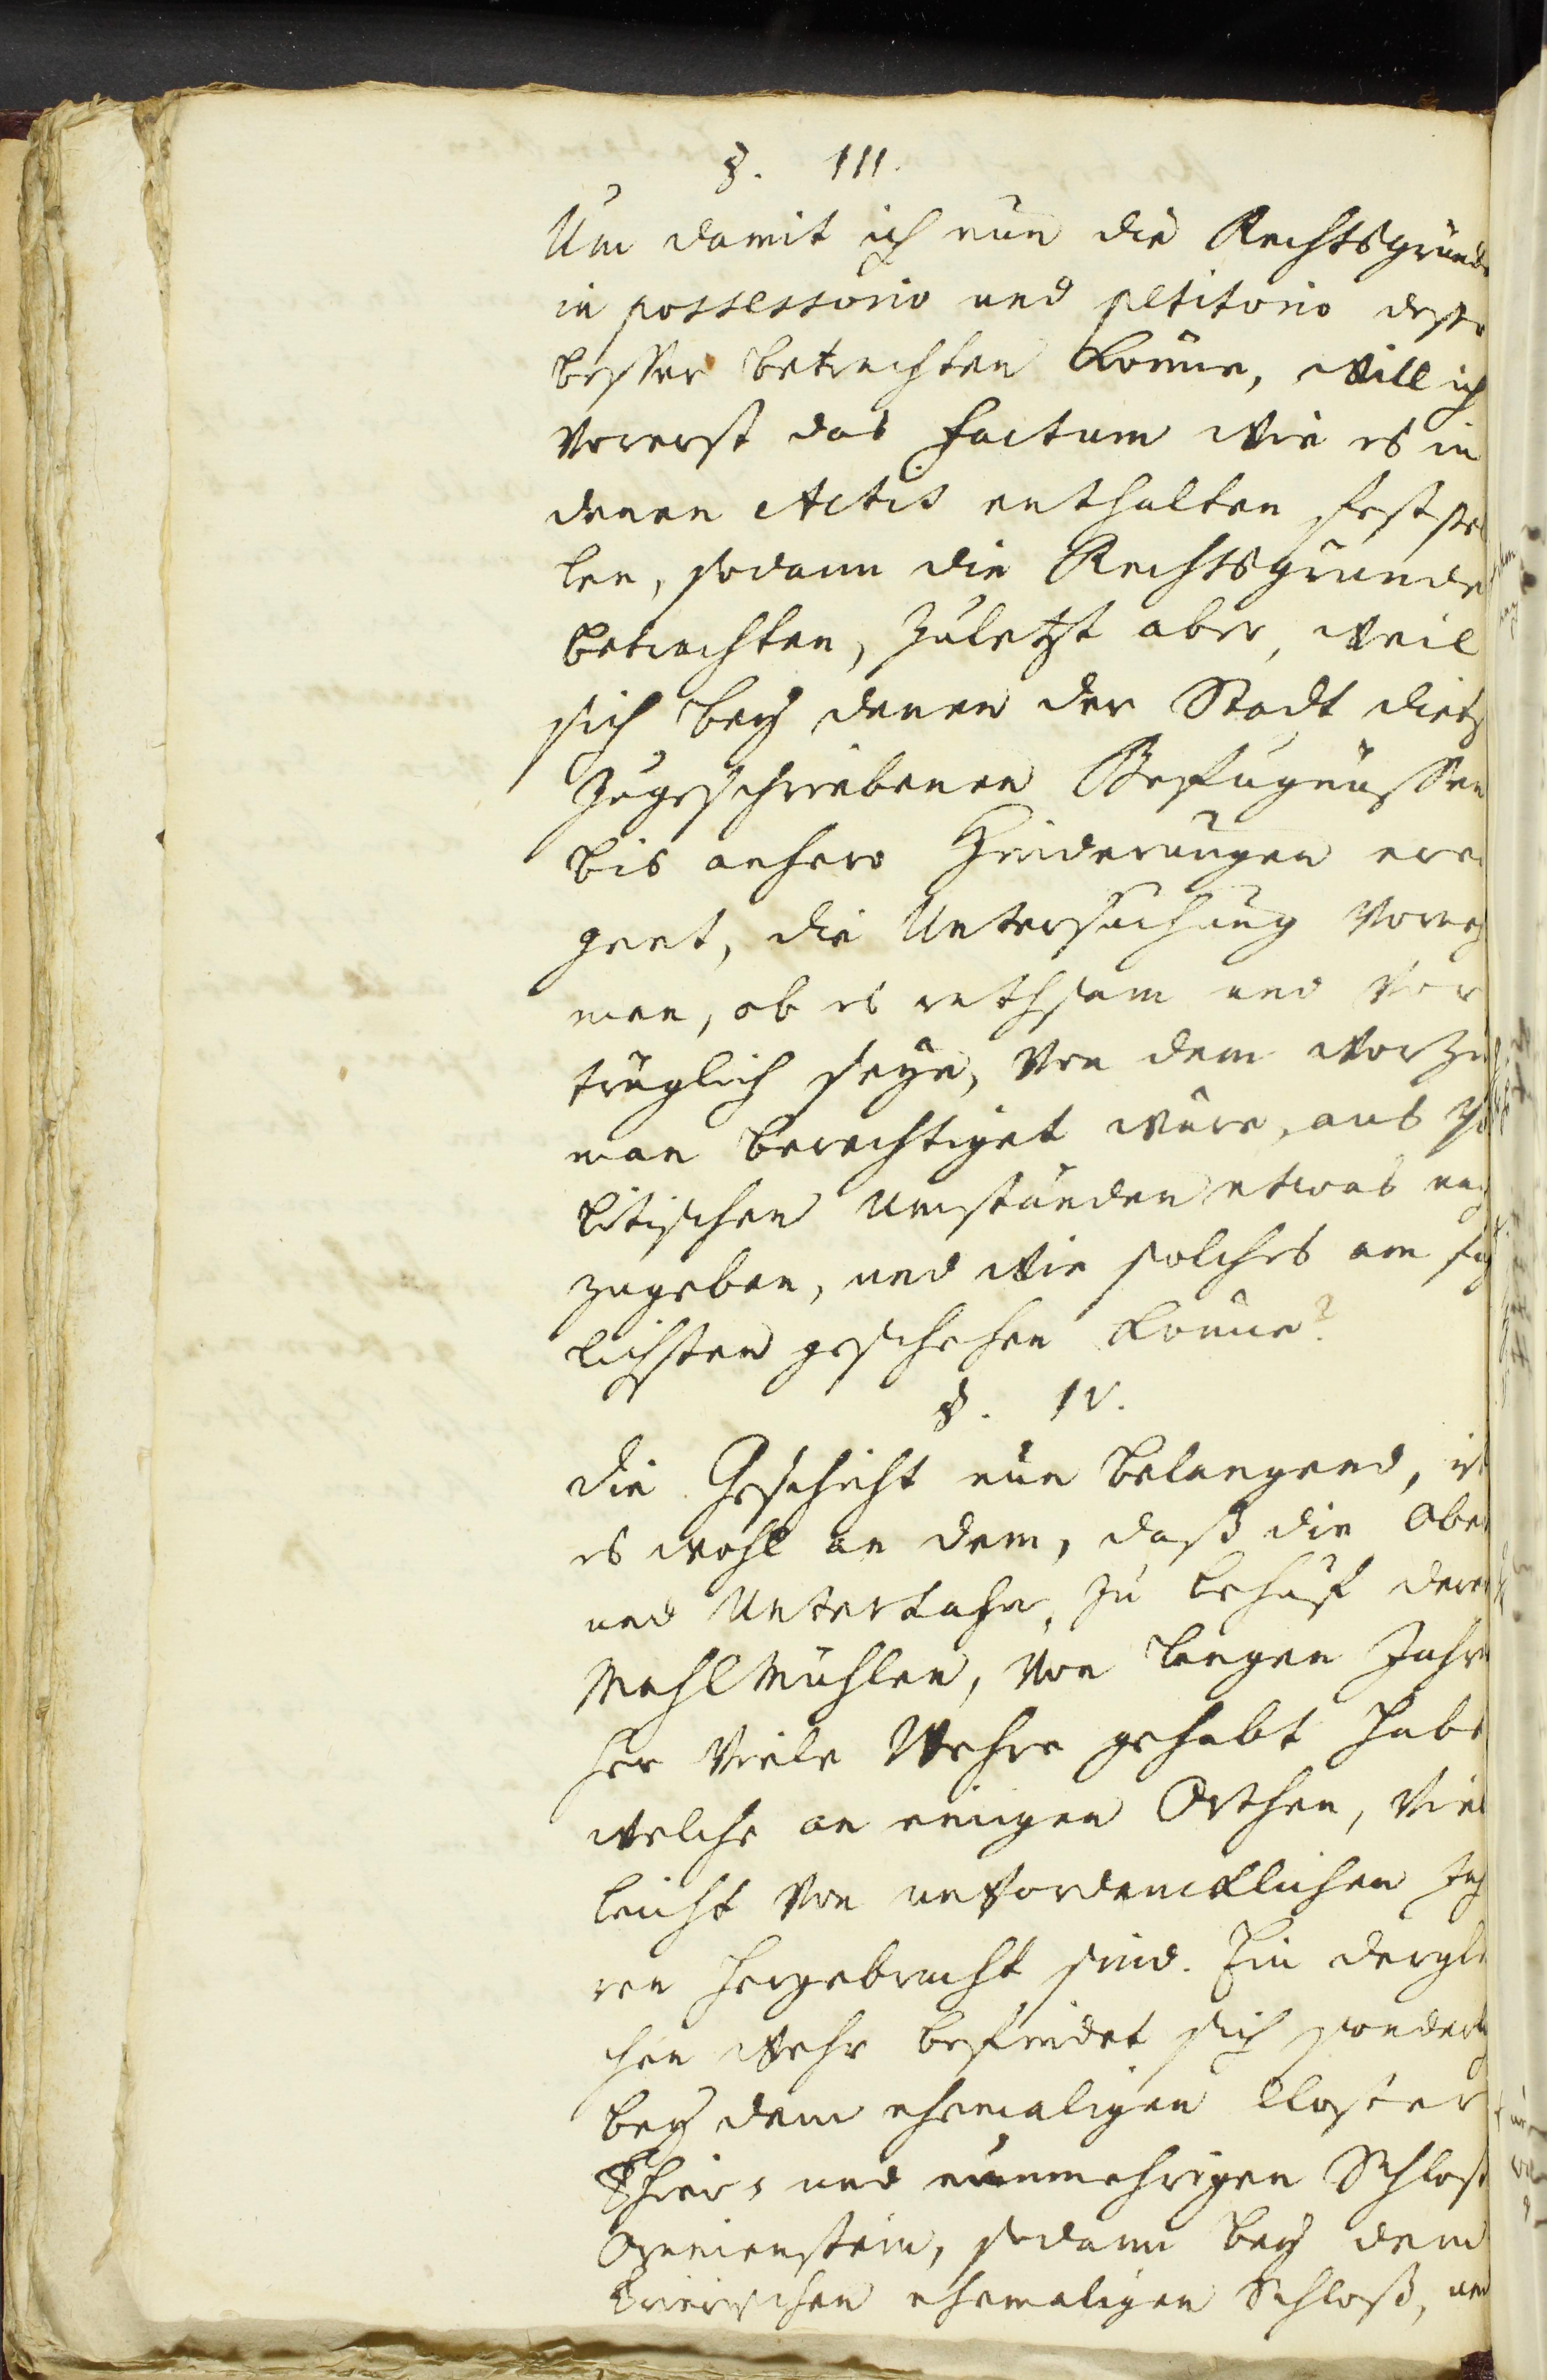 §. III.
Um damit ich nun die Rechtsgründe
in possessorio und petitorio desto
besser betrachten könne, will ich
vorerst das Factum wie es in
denen Actis enthalten festzstel
len, sodann die Rechtsgründe
betrachten, zuletzt aber, weil
sich bey denen der Stadt Dietz
zugeschriebenen Befugnüssen
bis anhero Hinderungen erei
gent, die Untersuchung vorneh
men, ob es rathsam und vor
träglich seye, von dem worzu
man berechtiget wäre, aus po
litischen Umständen etwas nach
zugeben, und wie solches am füg
lichsten geschehen könne?
§. IV.
Die Geschicht nun belangend, ist
es wohl an dem, daß die Ober
und Unterlahn, zu behuf deren
Mahlmühlen, von langen Jahren
her viele Wehre gehabt habe
welche an einigen Orthen, viel
leicht von unvordencklichen Jah
ren hergebracht sind. Ein dergl
chen Wehr befindet sich sonderl
bey dem ehemaligen Closter
Thier- und nunmehrigen Schloß
Oranienstein, sodann bey dem
Trierischen ehemaligen Schloß, und